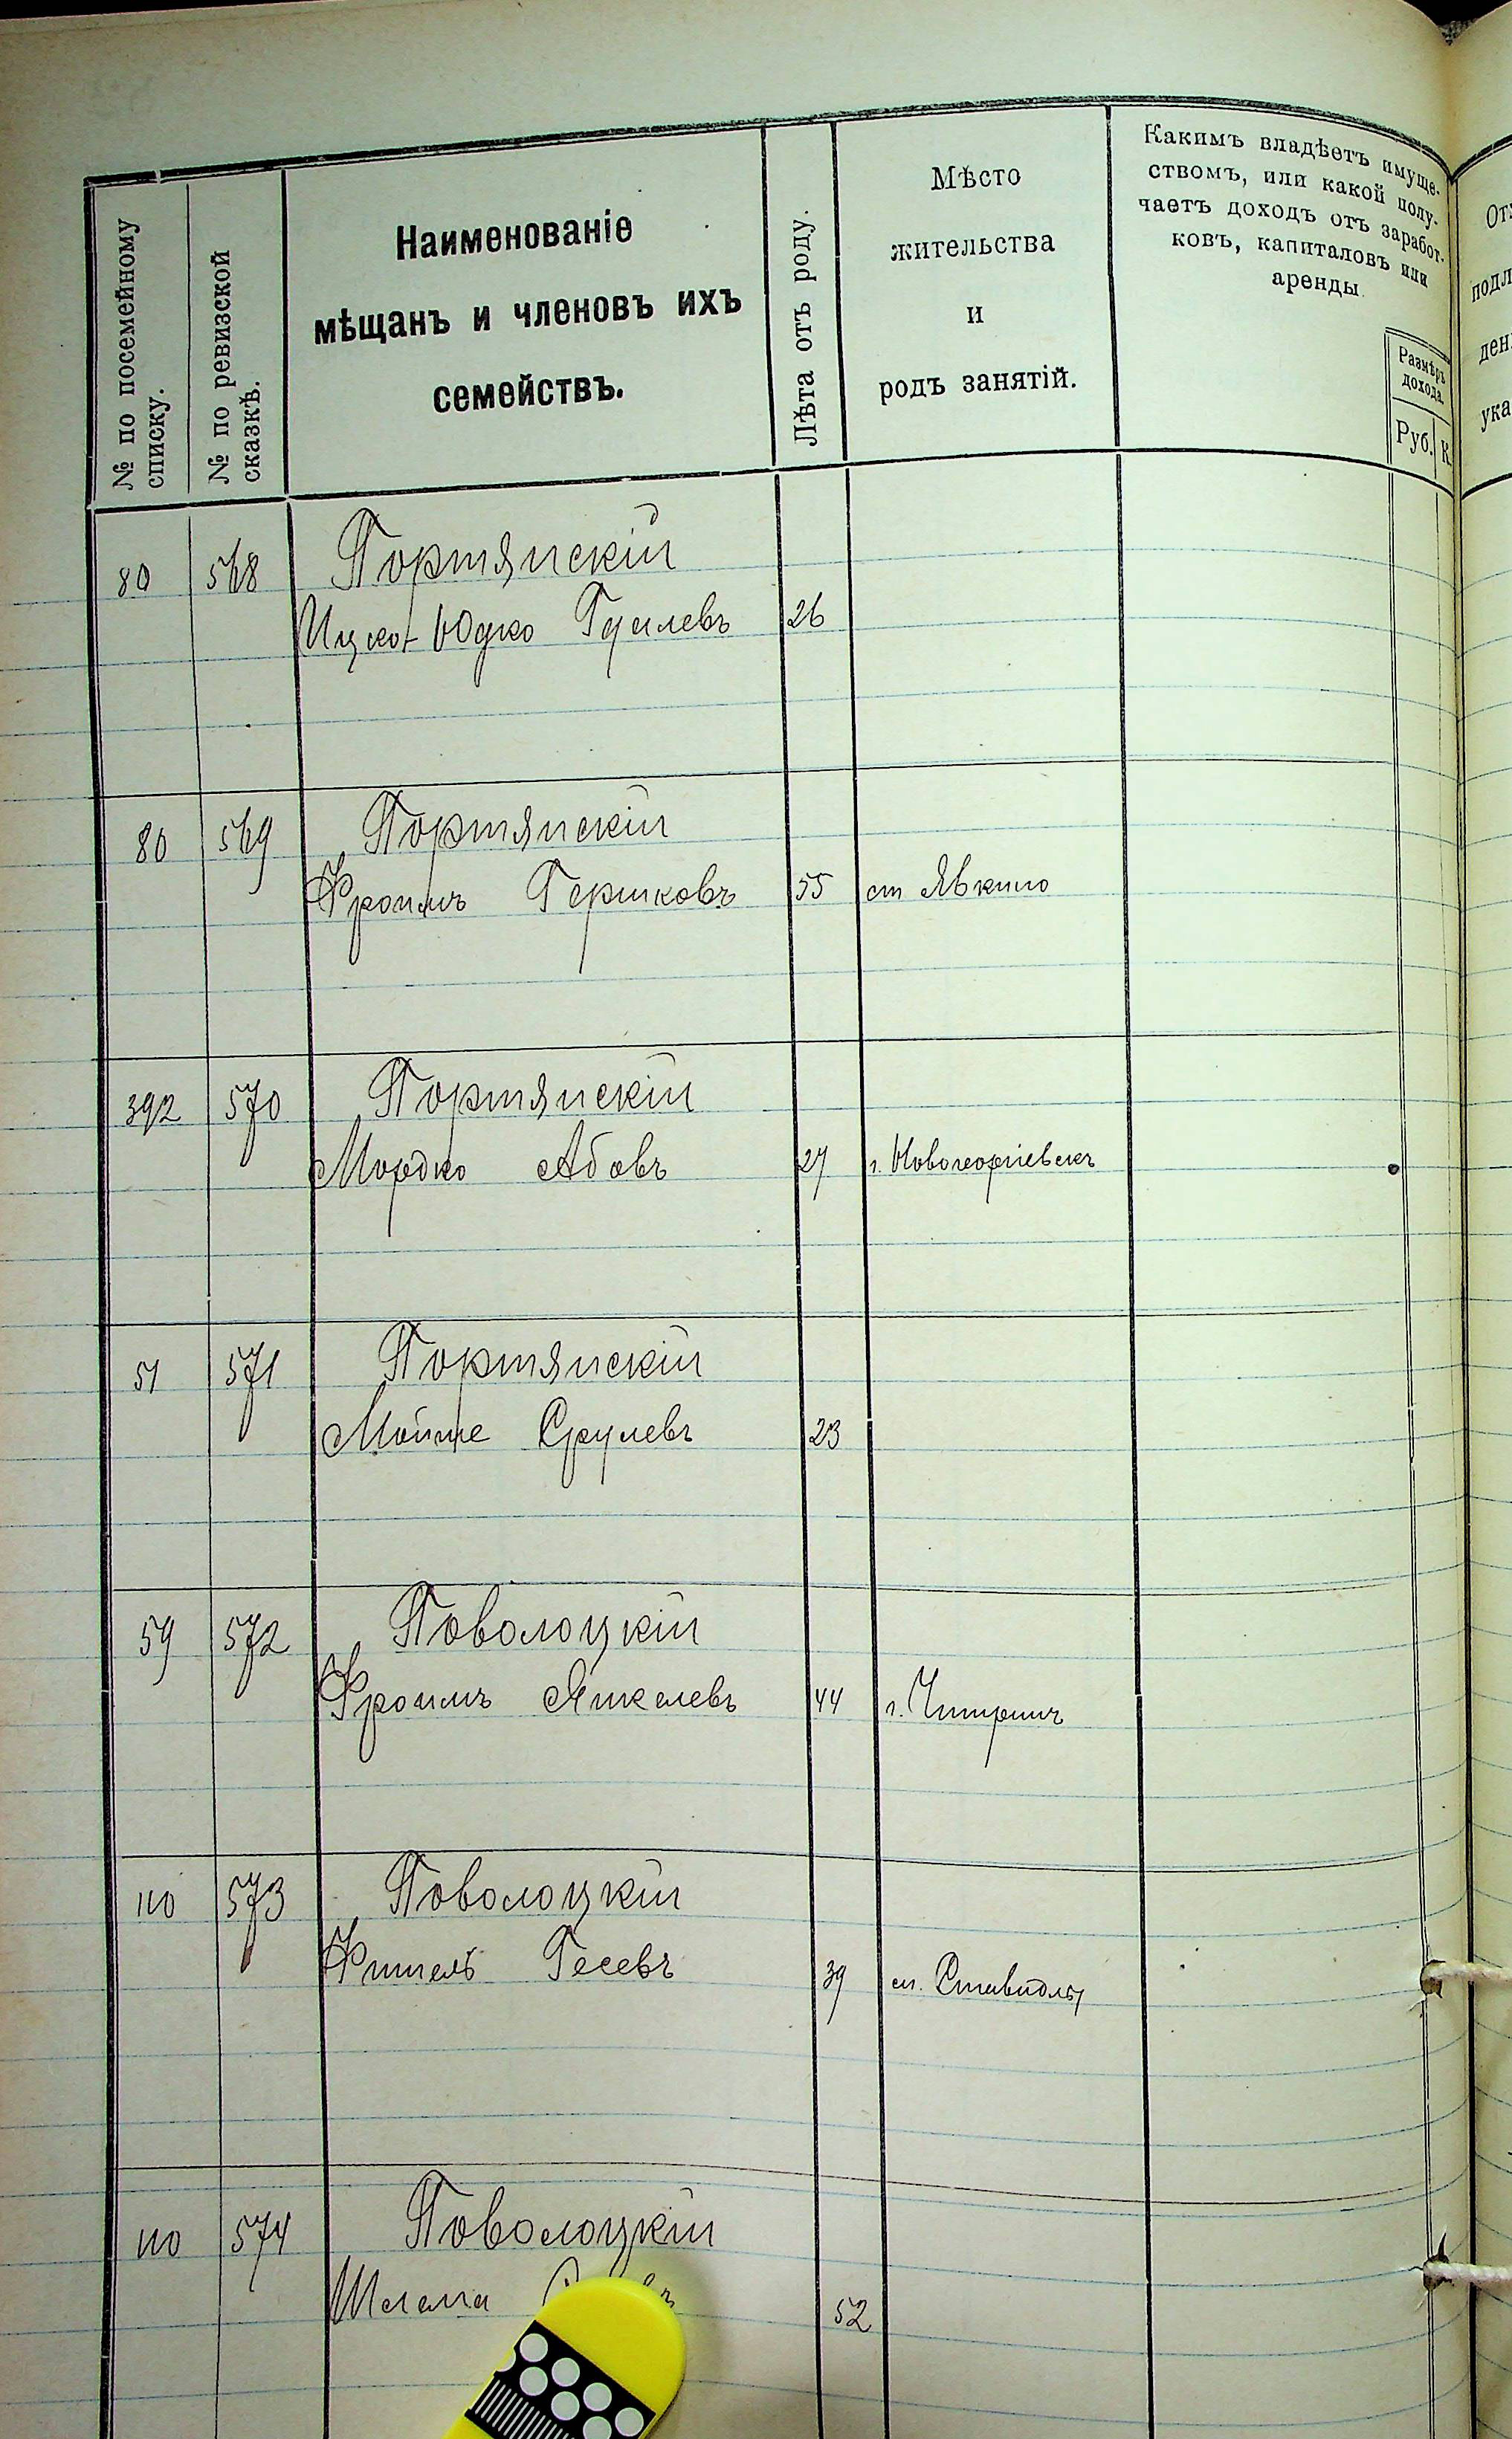 № по посемейному
списку.
№ по ревизской
сказкѣ.
Наименованіе
мѣщанъ и членовъ ихъ
семействъ.
Лѣта отъ роду.
Мѣсто
жительства
и
родъ занятій.
Какимъ владѣетъ имуще-
ствомъ, или какой полу-
чаетъ доходъ отъ заработ-
ковъ, капиталовъ или
аренды
Размѣръ
дохода.
Руб. К.
80 568 Портянскій
Ицко-Юдко 26
80 569 Портянскій
Фроимъ Гершковъ 55 ст Явкино
392 570 Портянскій
Мордко Абовъ 27 г. Новогеоргіевскъ
51 571 Портянскій
Мойше Срулевъ 23
59 572 Поволоцкій
Фроимъ Янкелевъ 44 г. Чигиринъ
110 573 Поволоцкій
Фишель Гесевъ 39 Ставидлы
110 574 Поволоцкій
Шлема 52